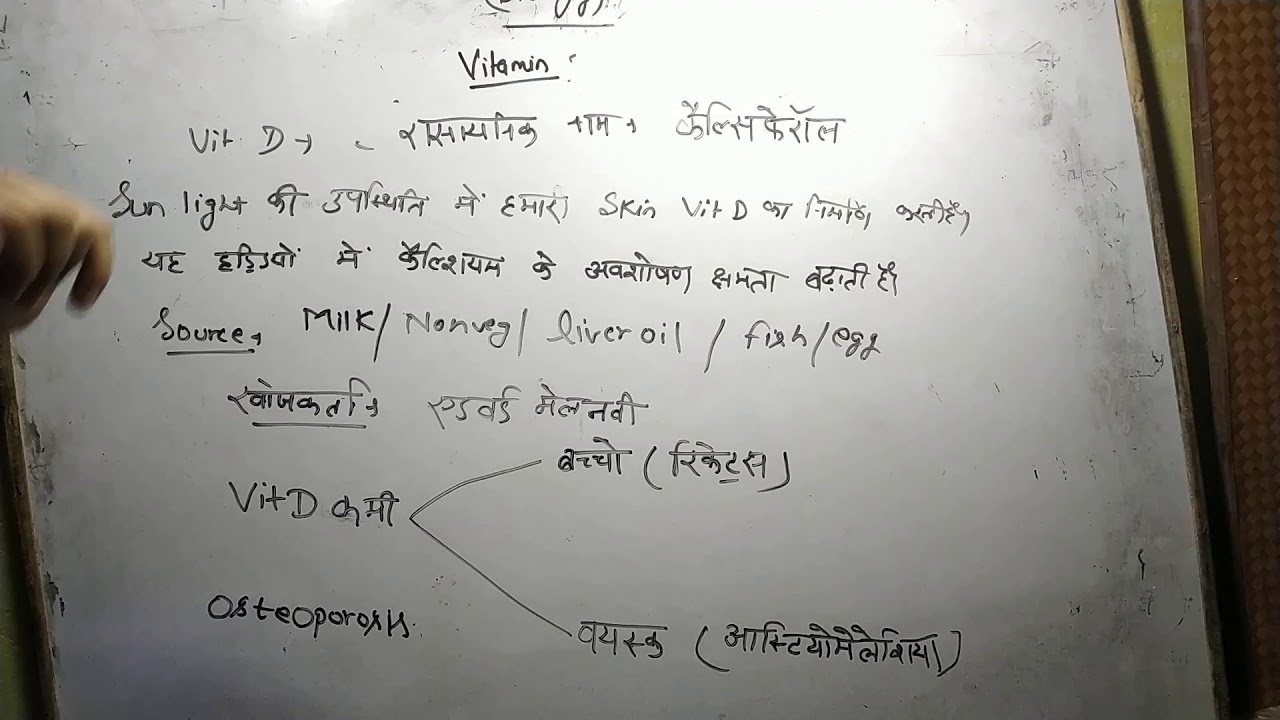 Vitamin :
Vit D → रासायनिक नाम → कैल्सिफेरॉल
Sun light की उपस्थिति में हमारी Skin Vit D का निर्माण करती है,
यह हड्डियों में कैल्शियम के अवशोषण क्षमता बढ़ाती है।
Source → Milk / Nonveg / liver oil / fish / egg
खोजकर्ता → एडवर्ड मेलनवी
बच्चो (रिकेट्स)
Vit D कमी
Osteoporosis.
वयस्क (आस्टियोमेलेशिया)